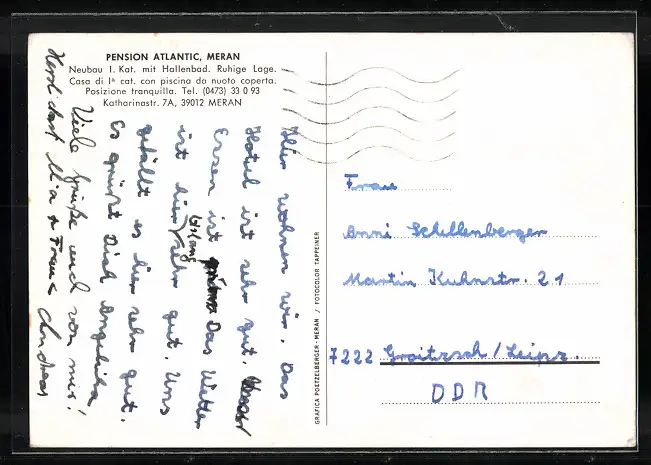 PENSION ATLANTIC, MERAN
Neubau I. Kat. mit Hallenbad. Ruhige Lage.
Casa di Iª cat. con piscina da nuoto coperta.
Posizione tranquilla. Tel. (0473) 33 0 93
Katharinastr. 7A, 39012 MERAN
Hier wohnen wir. Das
Hotel ist sehr gut.
Essen ist Das Wetter
ist hier bislang sehr gut. Uns
gefällt es hier sehr gut.
Es grüßt Dich Angelika
Viele Grüße auch von mir!
Herzlichst
GRAFICA POETZELBERGER - MERAN / FOTOCOLOR TAPPEINER
Frau
Anni Schellenberger
Martin Kuhnstr. 21
7222 Groitzsch/Leipz.
DDR